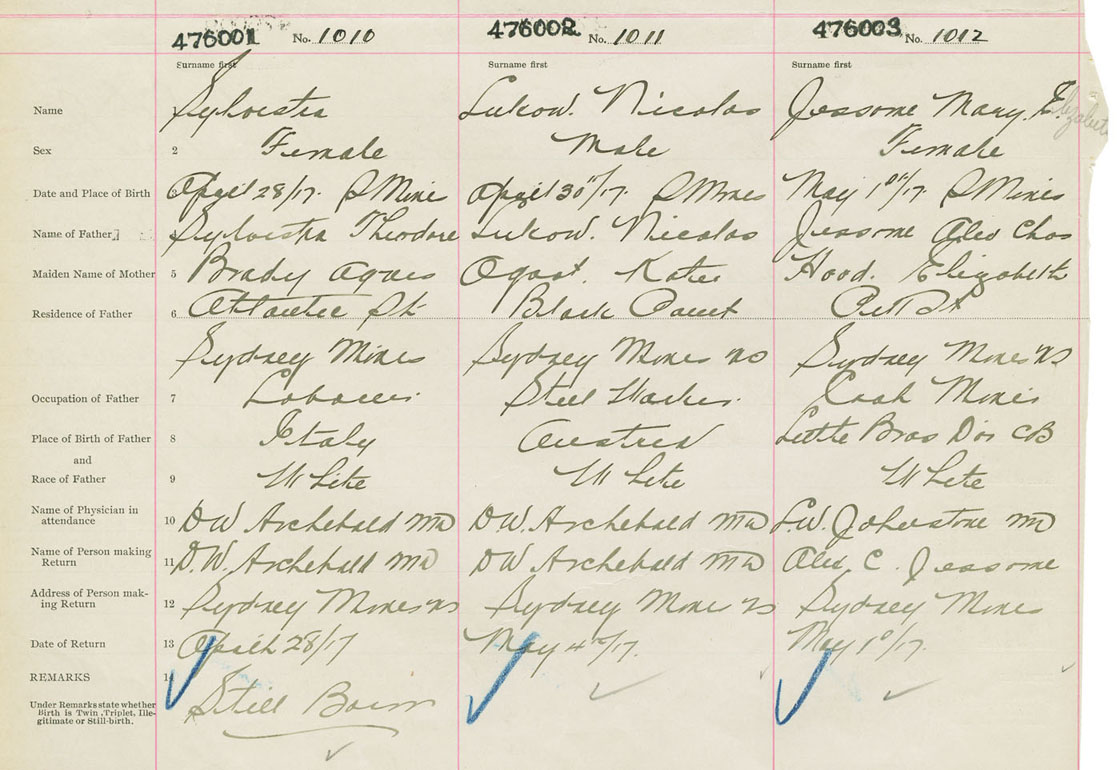 476001 No. 1010 476002 No. 1011 476003 No. 1012
Surname first Surname first Surname first
Name 1 Sylvestra Lukow. Nicolas Jessome Mary. E. Elizabeth
Sex 2 Female Male Female
Date and Place of Birth 3 April 28/17. S Mines April 30th/17. S Mines May 1st/17. S Mines
Name of Father 4 Sylvestra Theodore Lukow. Nicolas Jessome Alex Chas
Maiden Name of Mother 5 Brady Agnes Katie Hood. Elizabeth
Residence of Father 6 Atlantic St Black Court Pitt St
Sydney Mines Sydney Mines NS Sydney Mines NS
Occupation of Father 7 Laborer. Steel Worker. Mines
Place of Birth of Father 8 Italy Austria Little Bras Dor CB
and
Race of Father 9 White White White
Name of Physician in
attendance 10 DW Archebald MD DW Archebald MD L.W. Johnstone MD
Name of Person making
Return 11 D.W. Archebald MD DW Archebald MD Alex. C. Jessome
Address of Person mak-
ing Return 12 Sydney Mines NS Sydney Mine NS Sydney Mines
Date of Return 13 April 28/17 May 4th/17. May 10/17.
REMARKS 14 Still Born
Under Remarks state whether
Birth is Twin, Triplet, Ille-
gitimate or Still-birth.